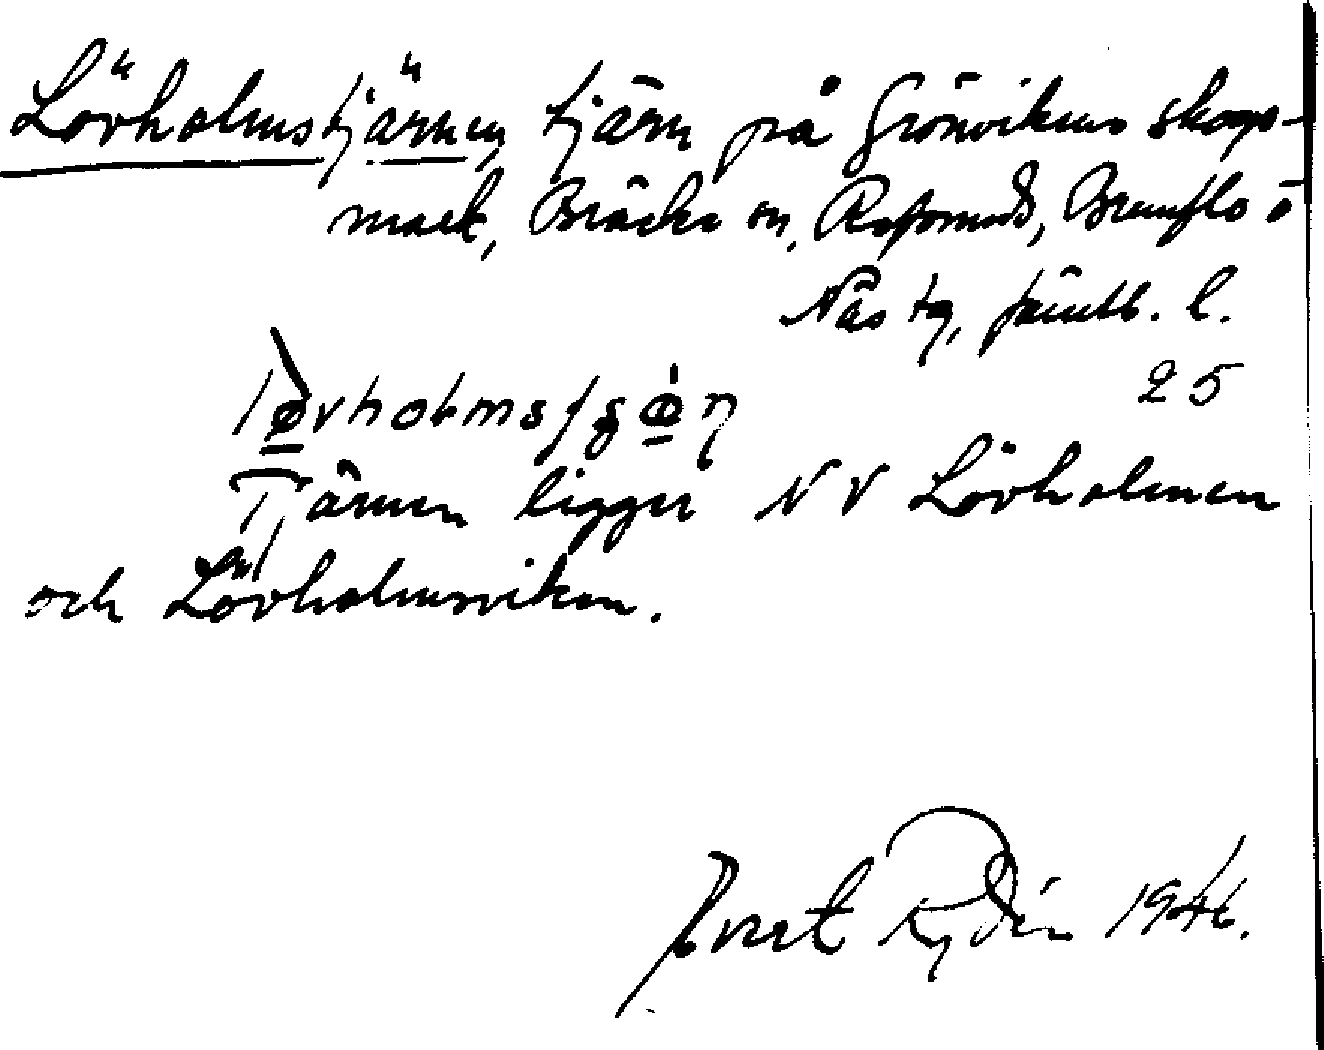 Lövholmstjärnen, tjärn på Grönvikens skogs-
mark, Bräcke sn, Refsunds, Brunflo o
Näs tg, Jämtl. l.
25
Tjärnen ligger NV Lövholmen
och Lövholmsviken.
Evert Rydén 1946.